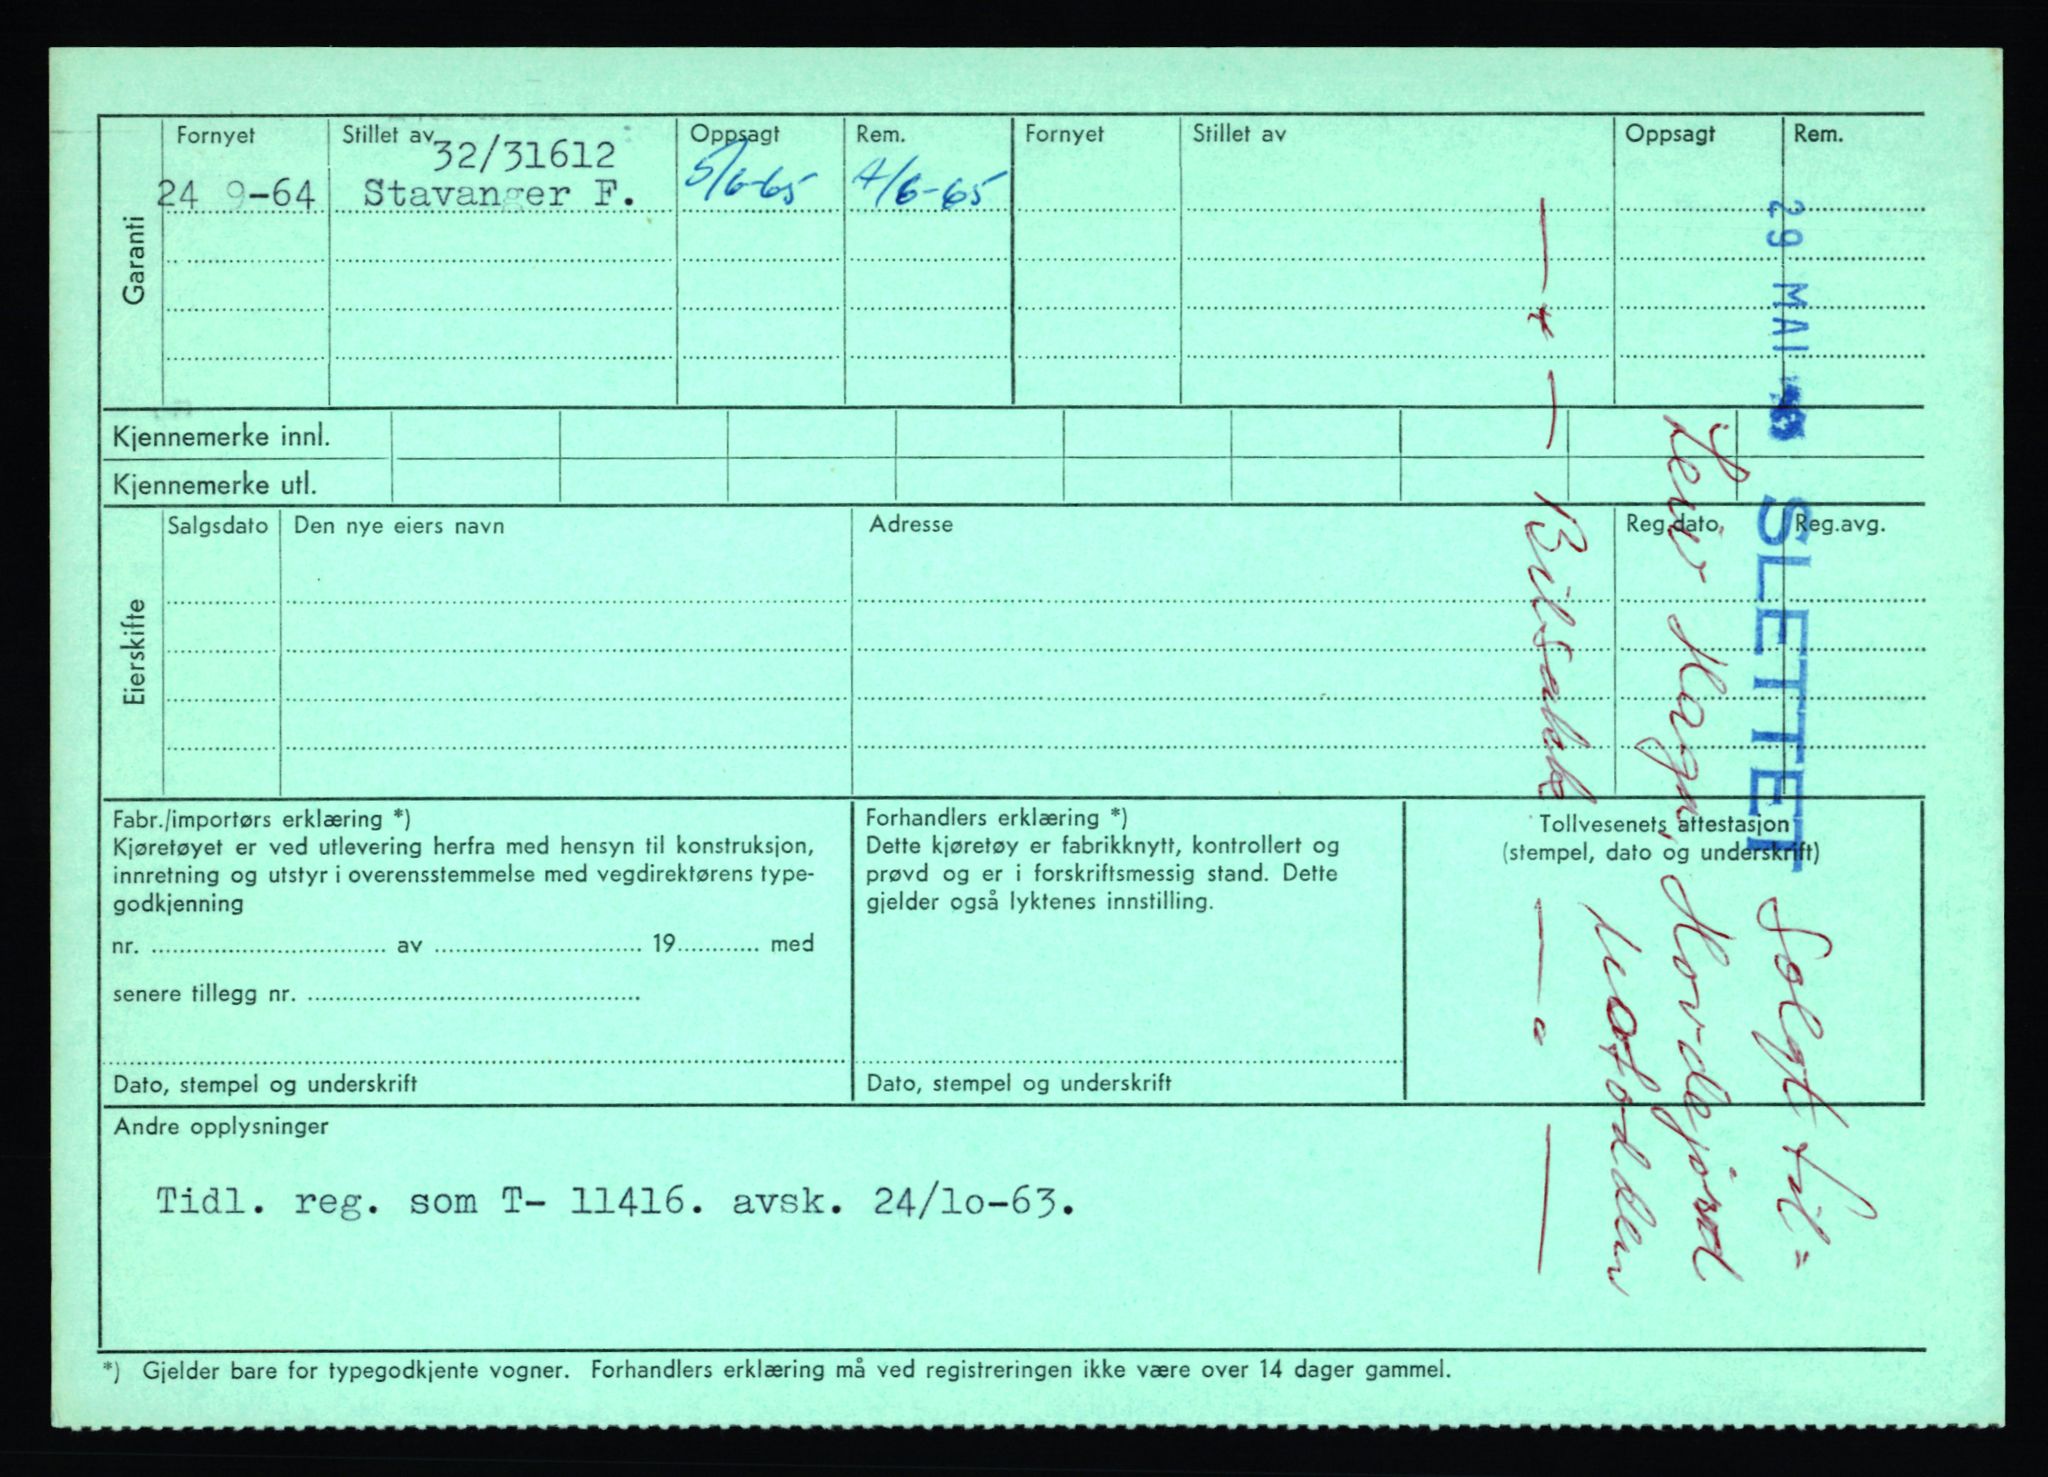 Garanti
Fornyet Stillet av Oppsagt Rem. Fornyet Stillet av Oppsagt Rem.
32/31612
24 9-64 Stavanger F. 5/6-65 4/6-65
Kjennemerke innl.
Kjennemerke utl.
Eierskifte
Salgsdato Den nye eiers navn Adresse Reg.dato Reg.avg.
Fabr./importørs erklæring *)
Kjøretøyet er ved utlevering herfra med hensyn til konstruksjon,
innretning og utstyr i overensstemmelse med vegdirektørens type-
godkjenning
nr. .......... av .......... 19.......... med
senere tillegg nr. ..........
Dato, stempel og underskrift
Forhandlers erklæring *)
Dette kjøretøy er fabrikknytt, kontrollert og
prøvd og er i forskriftsmessig stand. Dette
gjelder også lyktenes innstilling.
Dato, stempel og underskrift
Tollvesenets attestasjon
(stempel, dato og underskrift)
29 MAI
SLETTET
Solgt til =
Hovdejord
Notodden
Bilsakk
Andre opplysninger
Tidl. reg. som T- 11416. avsk. 24/1o-63.
*) Gjelder bare for typegodkjente vogner. Forhandlers erklæring må ved registreringen ikke være over 14 dager gammel.